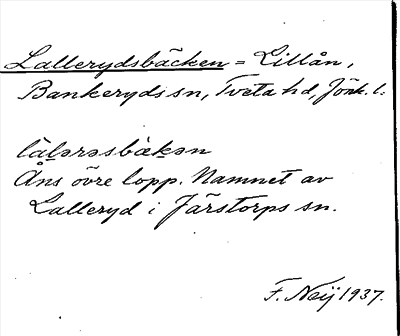 Lallerydsbäcken = Lillån,
Bankeryds sn, Tveta hd, Jönk. l.
làlərəsbäkən
Åns övre lopp. Namnet av
Lalleryd i Järstorps sn.
F. Neij 1937.